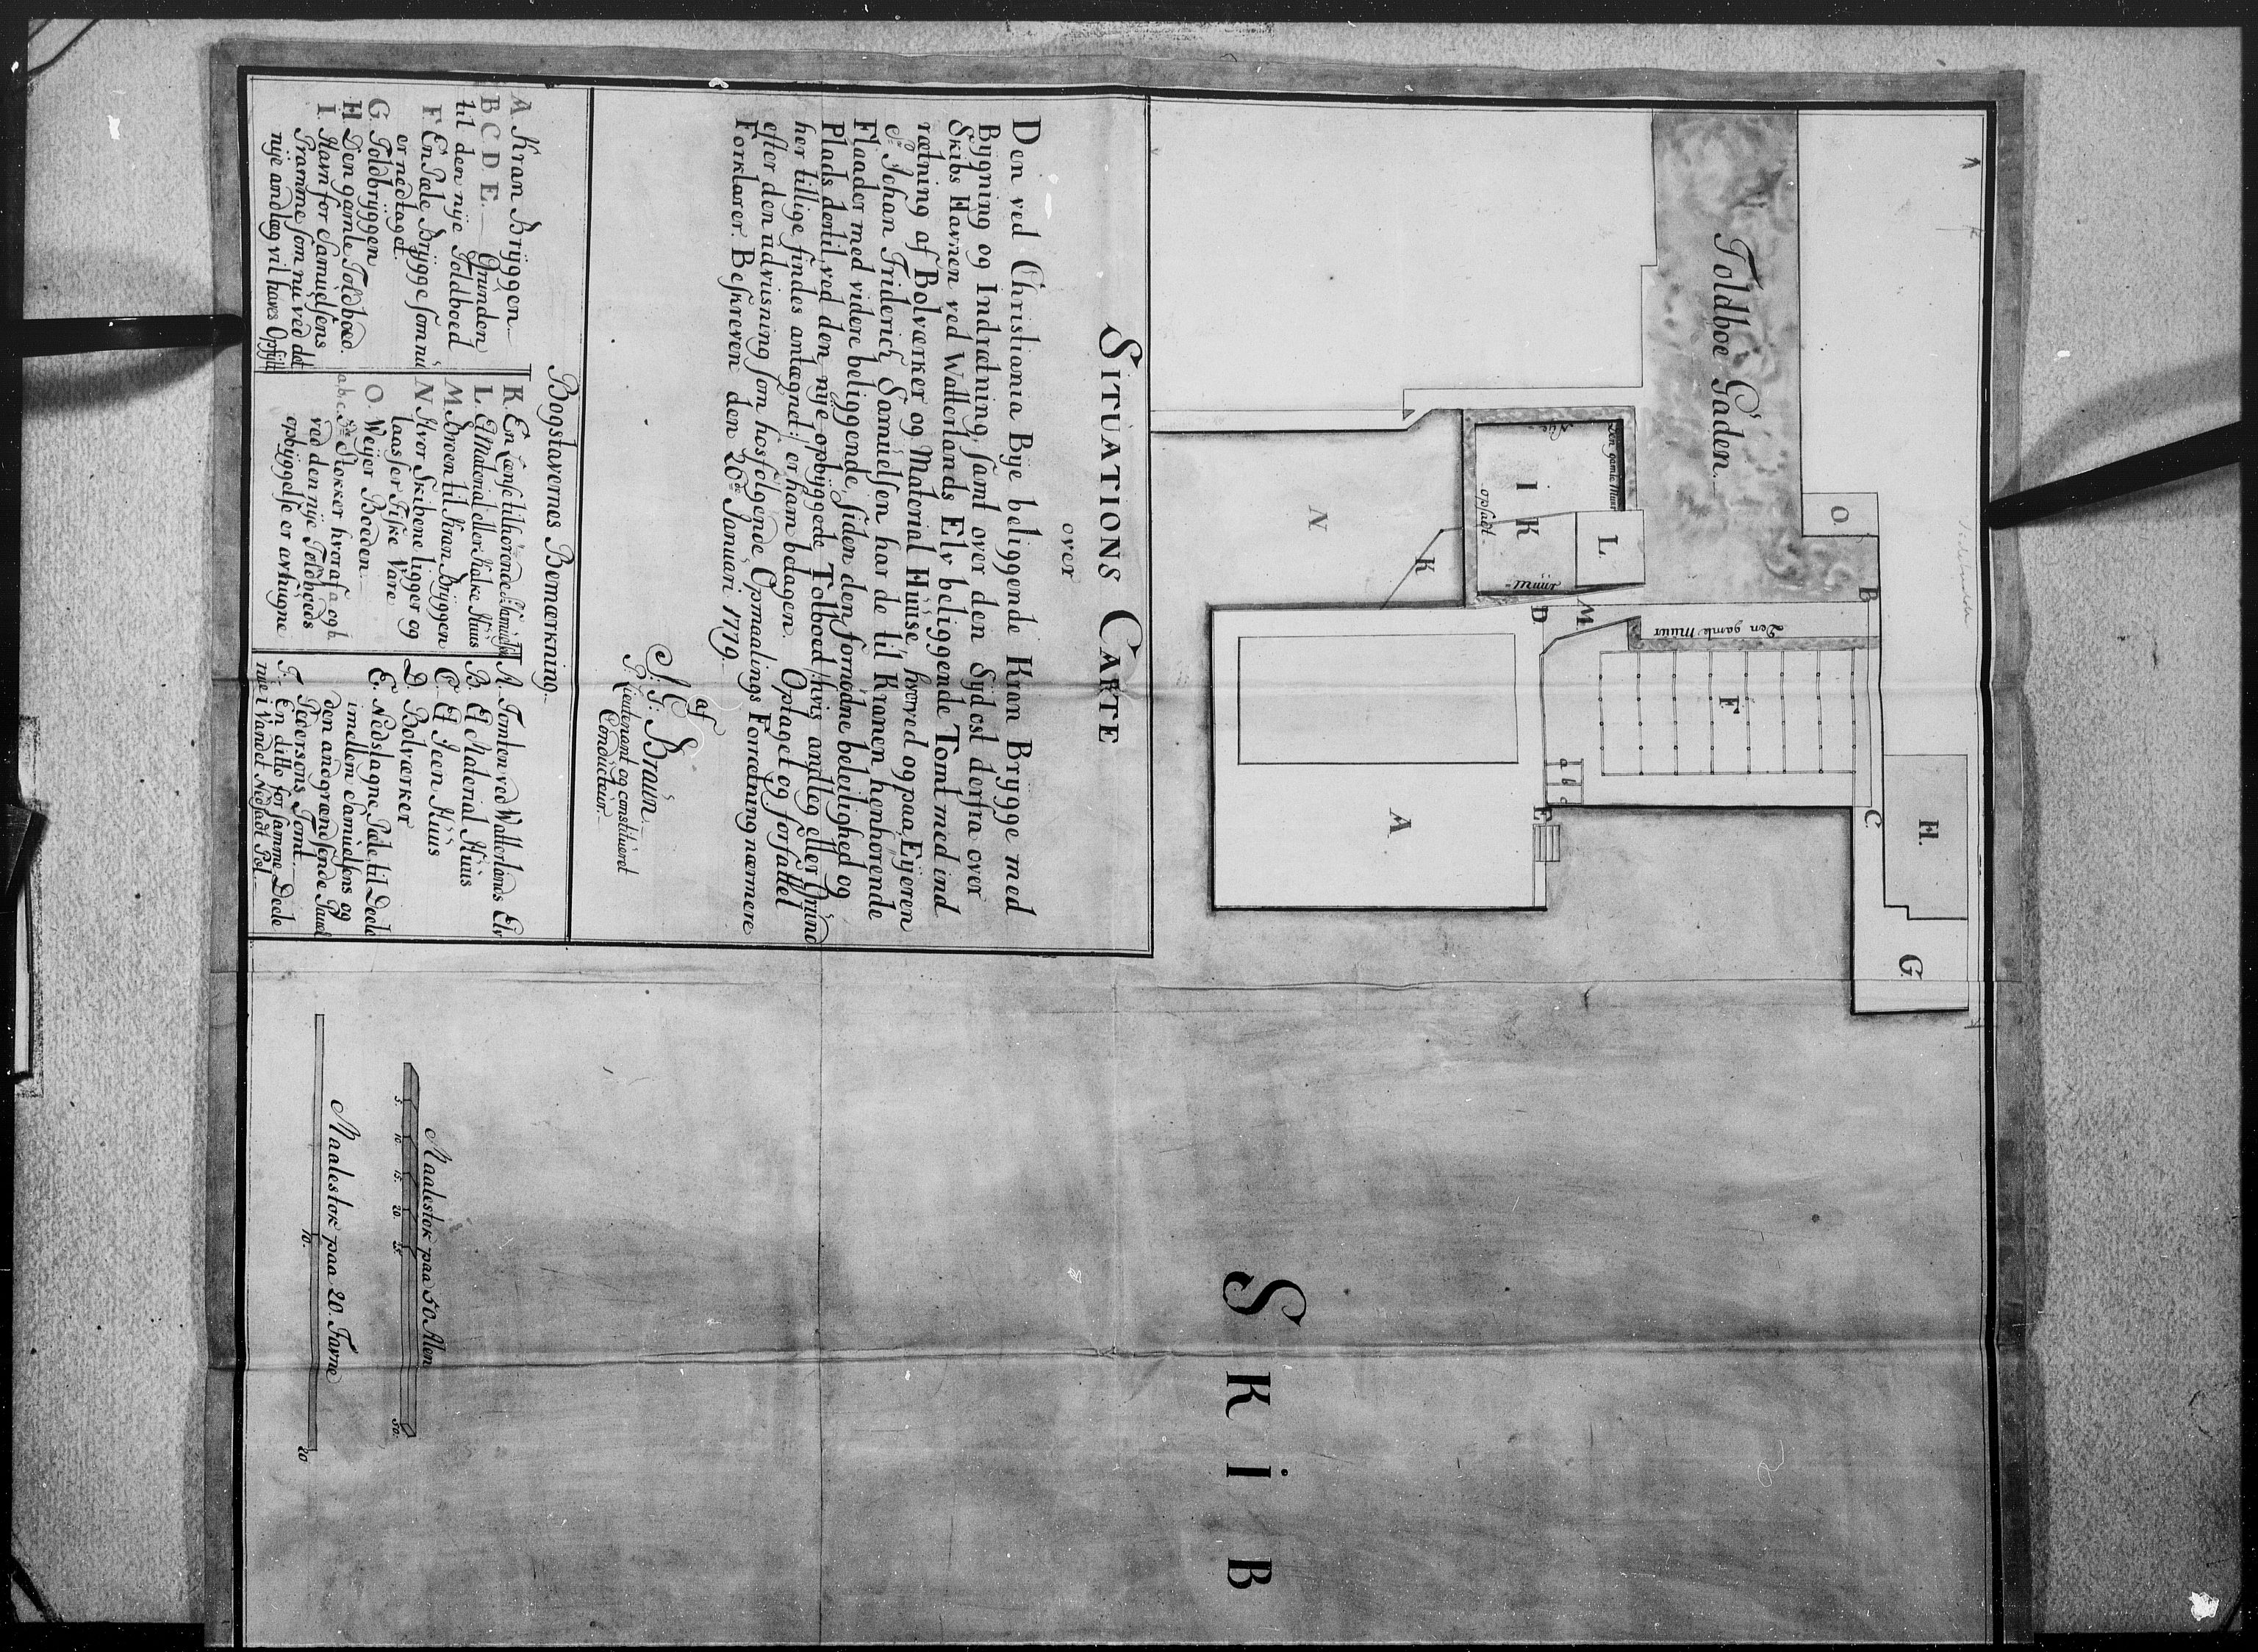 SITUATIONS CARTE
over
Den ved Christiania Bye beliggende Kran Brygge med
Bygning og Indrætning, samt over den Sydost derfra over
Skibs Havnen ved Watterlands Elv beliggende Tomt med ind
rætning af Bolværker og Material Huuse, hvorved og paa Eyeren
Sr. Johan Friderich Samuelsen har de til Kranen henhørende
Flaader med videre beliggende, siden den fornødne beleilighed og
Plads dertil, ved den nye opbyggede Tolboed /: hvis andlæg eller Grund
her tillige findes antægnet :/ er ham betagen. Optaget og forfattet
efter den udvisning som hosfølgende Opmaalings Forretning nærmere
Forklarer. Beskreven den 20de Januari 1779.
af
I. G. Braun.
P. Lieutenant og constitueret
Conducteur.
Bogstavernes Bemærkning.
A. Kran Bryggen
B C D E. Grunden
til den nye Toldboed
F. En Pæle Brygge som nu
er nedtaget.
G. Toldbryggen
H. Den gamle Toldboed.
I. Havn for Samuelsens
Pramme som nu ved det
nye andlæg vil haves Opfyldt
K. En Længse tilhørende Sr. Samuelsen
L. Et Material eller Kalke Huus
M. Broen til Kran Bryggen
N. Hvor Skibene ligger og
laasser Fiske Vare
O. Weyer Boeden
a b c. 3de Stokker hvoraf a og b.
ved den nye Toldboeds
opbyggelse er avhugne
A. Tomten ved Watterlands Elv
B. Et Material Huus
C. Et Ieen Huus
D. Bolværker
E. Nedslagne Pæle til Deele
imellem Samuelsens og
den andgrændsende Pauel
Pedersens Tomt
F. En ditto for samme Deele
nue i Vandet Nedsadt Pol.
Toldboe Gaden.
Den gamle Muur
Nye
opsadt
muur
Den gamle Muur
A
B
C
D
E
F
G
H.
I
K
K
L.
M
N
O.
a b c
Maalestok paa 50 Alen
5. 10. 15. 20. 25. 50.
Maalestok paa 20. Favne
10. 20
SKIB